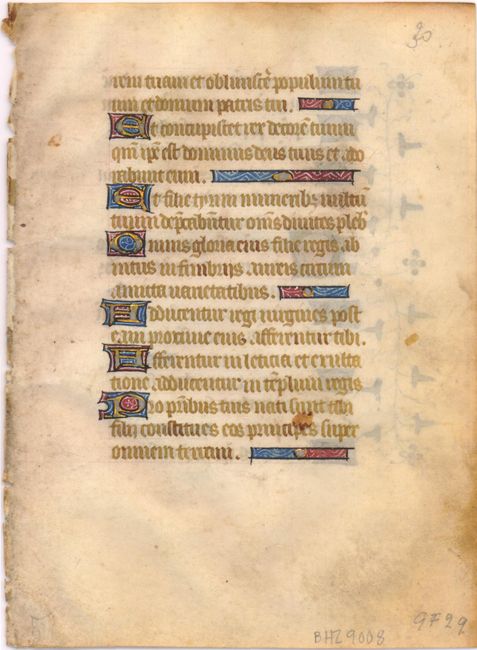 30
rem tuam et obliuiscẽ populum tu
um et domum patris tui.
Et concupiscet rex decorẽ tuum
qm̃ ip̃e est dominus deus tuus et ado
rabunt eum.
Et filie tyrum in munerib; multũ
tuum dep̃cabuntur om̃s diuites pleb
Omnis gloria eius filie regis ab
intus in fimbrijs aureis circum
amicta uarietatibus.
Adducentur regi uirgines post
eam proxime eius afferentur tibi.
Afferentur in leticia et exulta
tione adducentur in templum regis
Pro pr̃ibus tuis nati sunt tibi
filij constitues eos principes super
omnem terram.
BHZ9008
9F29